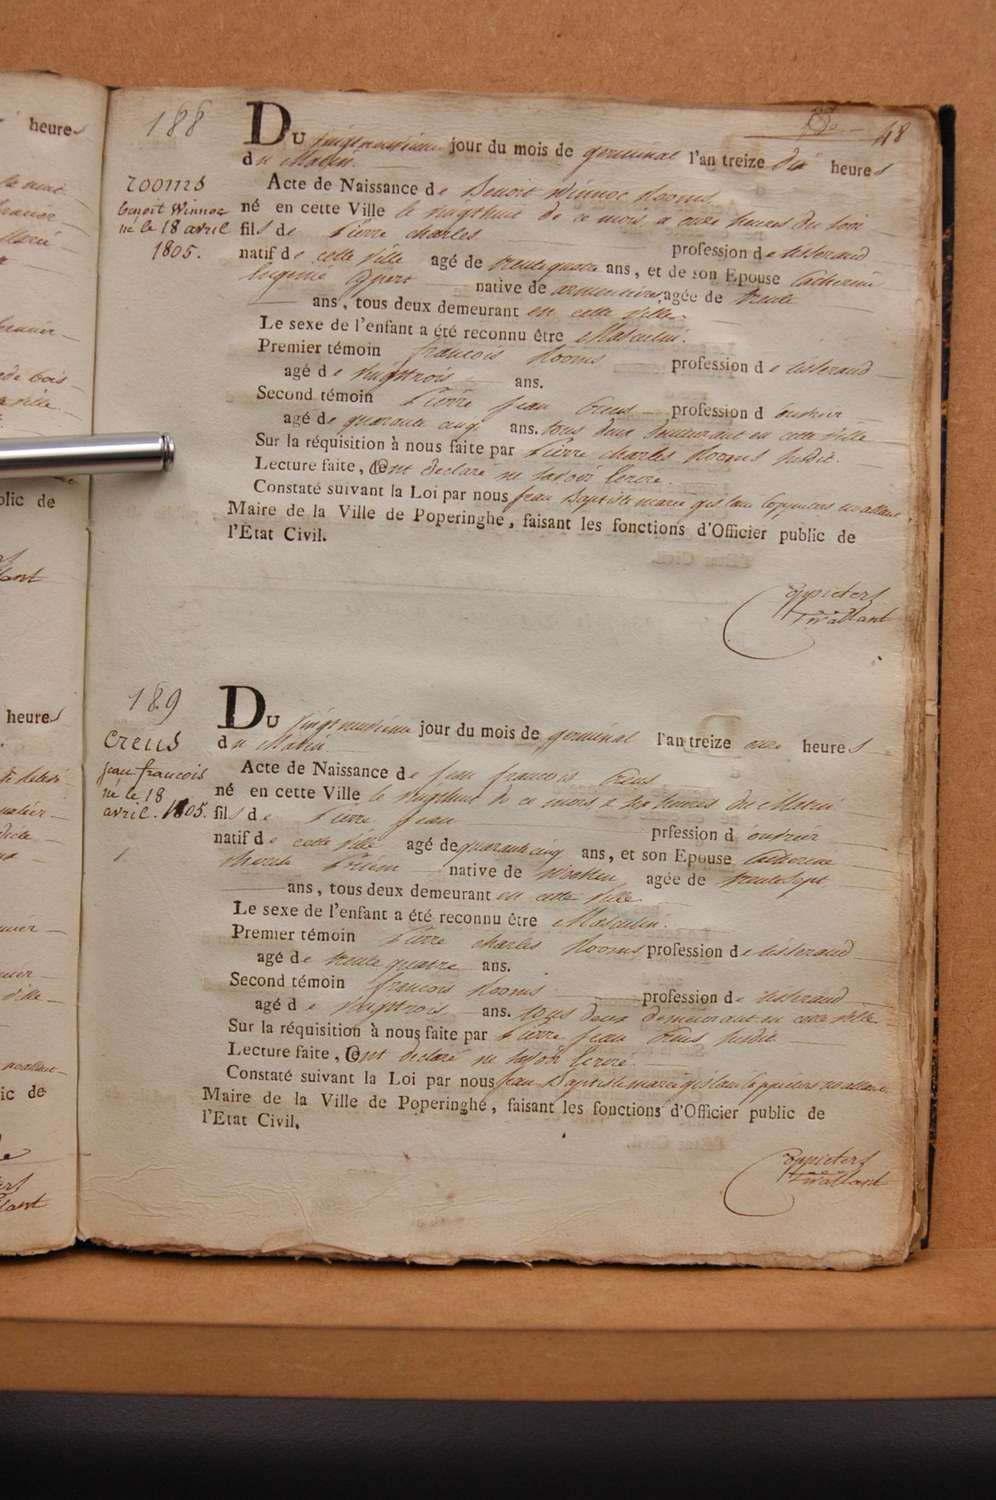 heures
olic de
lant
heures
ic de
lant
48
188
rooms
benoit Winnoc
né le 18 avril
1805.
Du vingtneuvième jour du mois de germinal l'an treize dix heures
du Matin
Acte de Naissance de Benoit Winnoc Rooms
né en cette Ville le vingthuit de ce mois a onze heures du soir
fils de Pierre charles
profession de tisserand
natif de cette ville agé de trente quatre ans, et de son Epouse Catherine
Eugenie native de agée de trente
ans, tous deux demeurant en cette ville
Le sexe de l'enfant a été reconnu être Masculin.
Premier témoin françois Rooms profession de tisserand
agé de vingttrois ans.
Second témoin Pierre Jean Creus profession d'ouvrier
agé de quarante cinq ans. tous deux demeurant en cette ville
Sur la réquisition à nous faite par Pierre charles Rooms susdit.
Lecture faite, Ont declaré ne savoir Ecrire.
Constaté suivant la Loi par nous Jean Baptiste marie gislain
Maire de la Ville de Poperinghe, faisant les fonctions d'Officier public de
l'Etat Civil.
189
creus
jean francois
né le 18
avril. 1805.
Du vingtneuvième jour du mois de germinal l'an treize onze heures
du Matin
Acte de Naissance de Jean francois Creus
né en cette Ville le vingthuit de ce mois a heures du Matin
fils de Pierre Jean
prfession d'ouvrier
natif de cette ville agé de quarante cinq ans, et son Epouse Catherine
therese native de agée de trentesept
ans, tous deux demeurant en cette ville
Le sexe de l'enfant a été reconnu être Masculin.
Premier témoin Pierre charles Rooms profession de tisserand
agé de trente quatre ans.
Second témoin françois Rooms profession de tisserand
agé de vingttrois ans. tous deux demeurant en cette ville
Sur la réquisition à nous faite par Pierre Jean Creus susdit
Lecture faite, Ont declaré ne savoir Ecrire
Constaté suivant la Loi par nous Jean Baptiste marie gislain
Maire de la Ville de Poperinghe, faisant les fonctions d'Officier public de
l'Etat Civil.